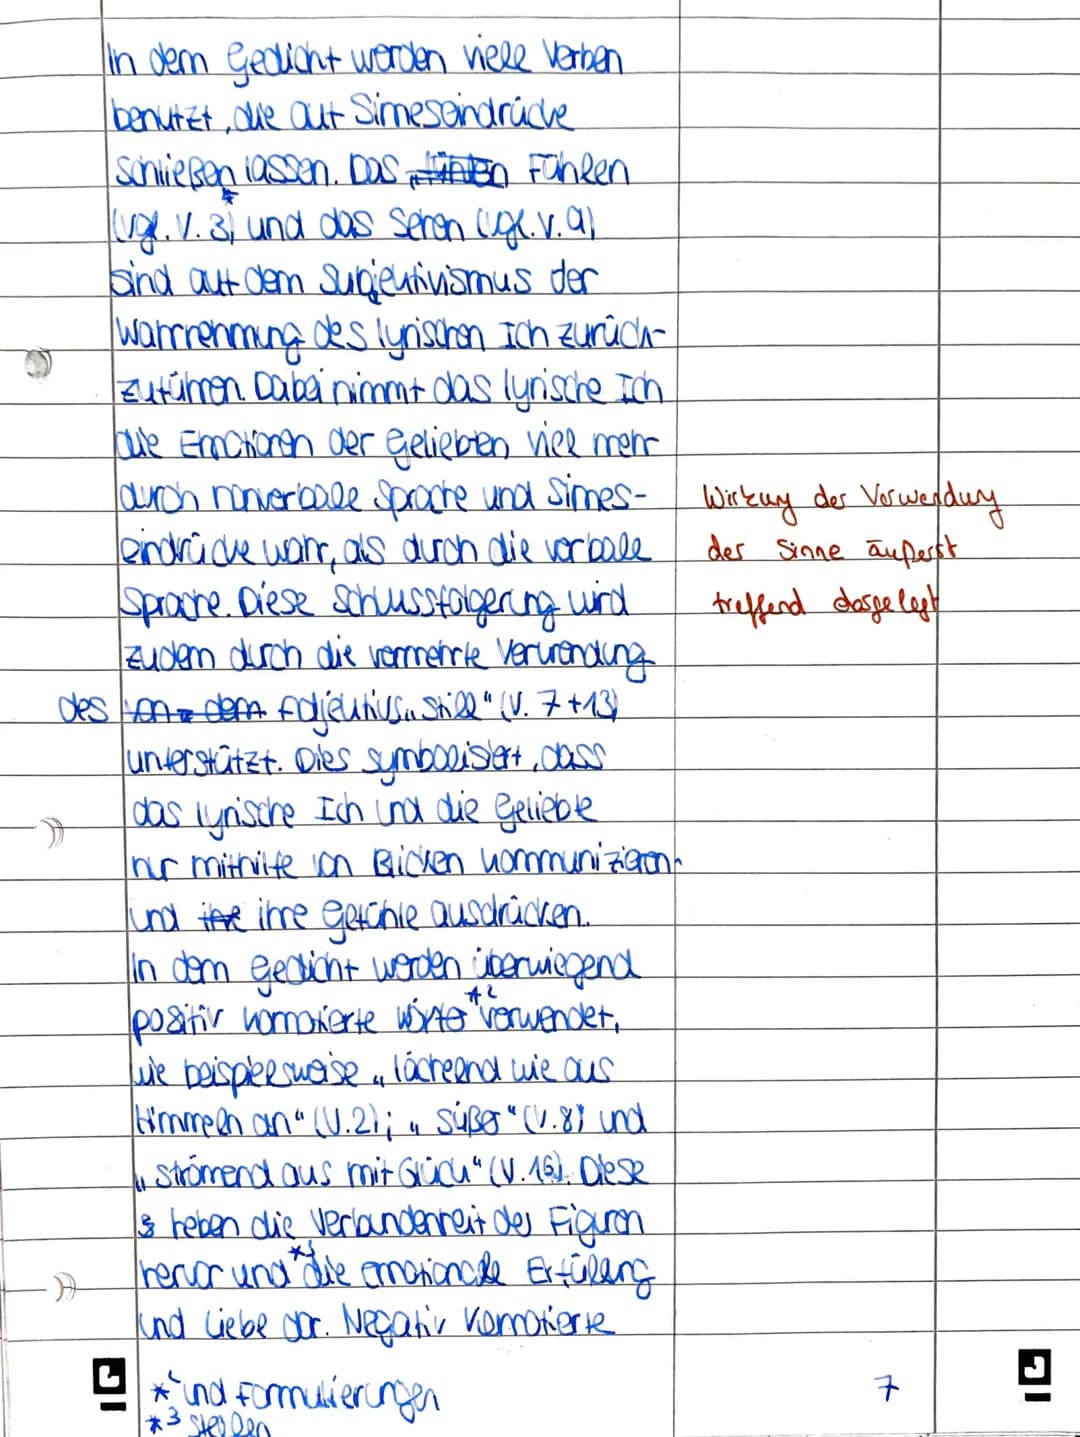 In dem Gedicht werden viele Verben
benutzt, die auf Sinneseindrücke
schließen lassen. Das Fühlen
(vgl. V. 3) und das Sehen (vgl. V. 9)
sind auf dem Subjektivismus der
Wahrnehmung des lyrischen Ich zurück-
zuführen. Dabei nimmt das lyrische Ich
die Emotionen der Geliebten viel mehr
durch nonverbale Sprache und Sinnes-
eindrücke wahr, als durch die verbale
Sprache. Diese Schlussfolgerung wird
zudem durch die vermehrte Verwendung
des von dem Adjektivs „still" (V. 7+13)
unterstützt. Dies symbolisiert, dass
das lyrische Ich und die Geliebte
nur mithilfe von Blicken kommunizieren
und ihre ihre Gefühle ausdrücken.
In dem Gedicht werden überwiegend
positiv konnotierte Wörter *2 verwendet,
wie beispielsweise „lächelnd wie aus
Himmeln an" (V.2); „süßer" (V.8) und
„strömend aus mit Glück" (V.16). Diese
heben die Verbundenheit der Figuren
hervor und *3 die emotionale Erfüllung
und Liebe dar. Negativ konnotierte
*2 und Formulierungen
*3 stellen
Wirkung der Verwendung
der Sinne äußerst
treffend dargelegt
7